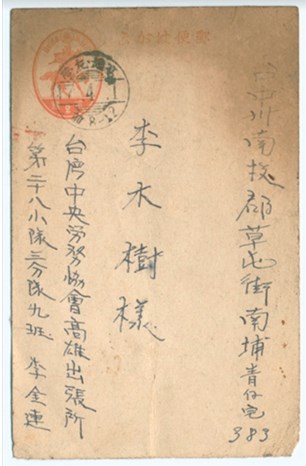 郵便はがき
台中州南投郡草屯街南埔青仔宅
383
李木樹様
台湾中央労務協會高雄出張所
第二十八小隊三分隊九班 李金連